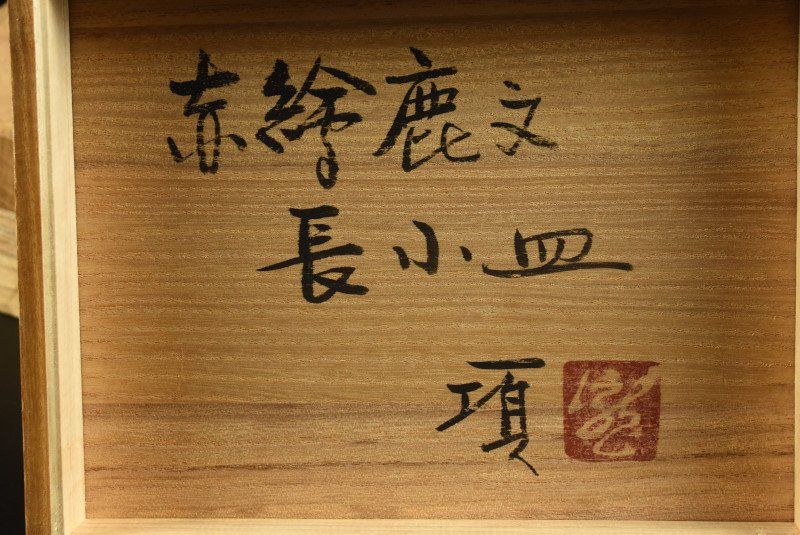 赤繪鹿文
長小皿
項